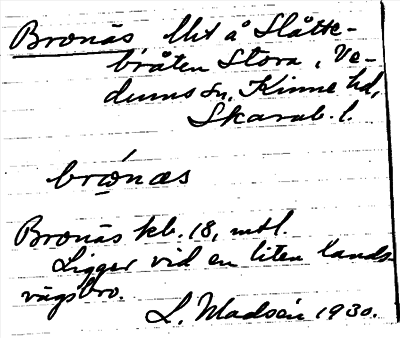 Bronäs Lht å Slätte-
bråten Stora, Ve-
dums sn, Kinne hd,
Skarab. l.
brώnæs
Bronäs kb. 18, mtl.
Ligger vid en liten lands-
vägsbro.
L. Madsén 1930.